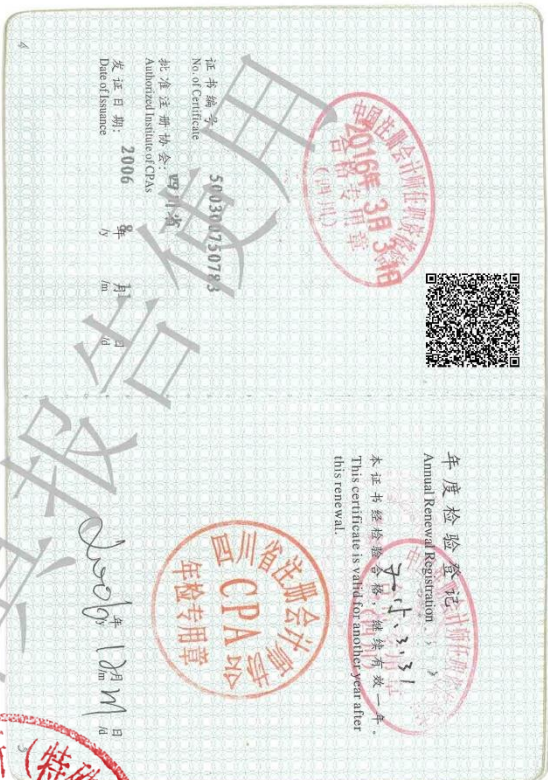 4
证书编号：
No. of Certificate
500300750783
批准注册协会：四川省
Authorized Institute of CPAs
发证日期：2006 年 8 月 日
Date of Issuance /y /m /d
中国注册会计师任职资格
2016年3月31日
合格专用章
（四川）
年度检验登记
Annual Renewal Registration
本证书经检验合格，继续有效一年。
This certificate is valid for another year after
this renewal.
四川省注册会计
CPA
年检专用章
年 月 日
/y /m /d
5
报告使用
（特殊